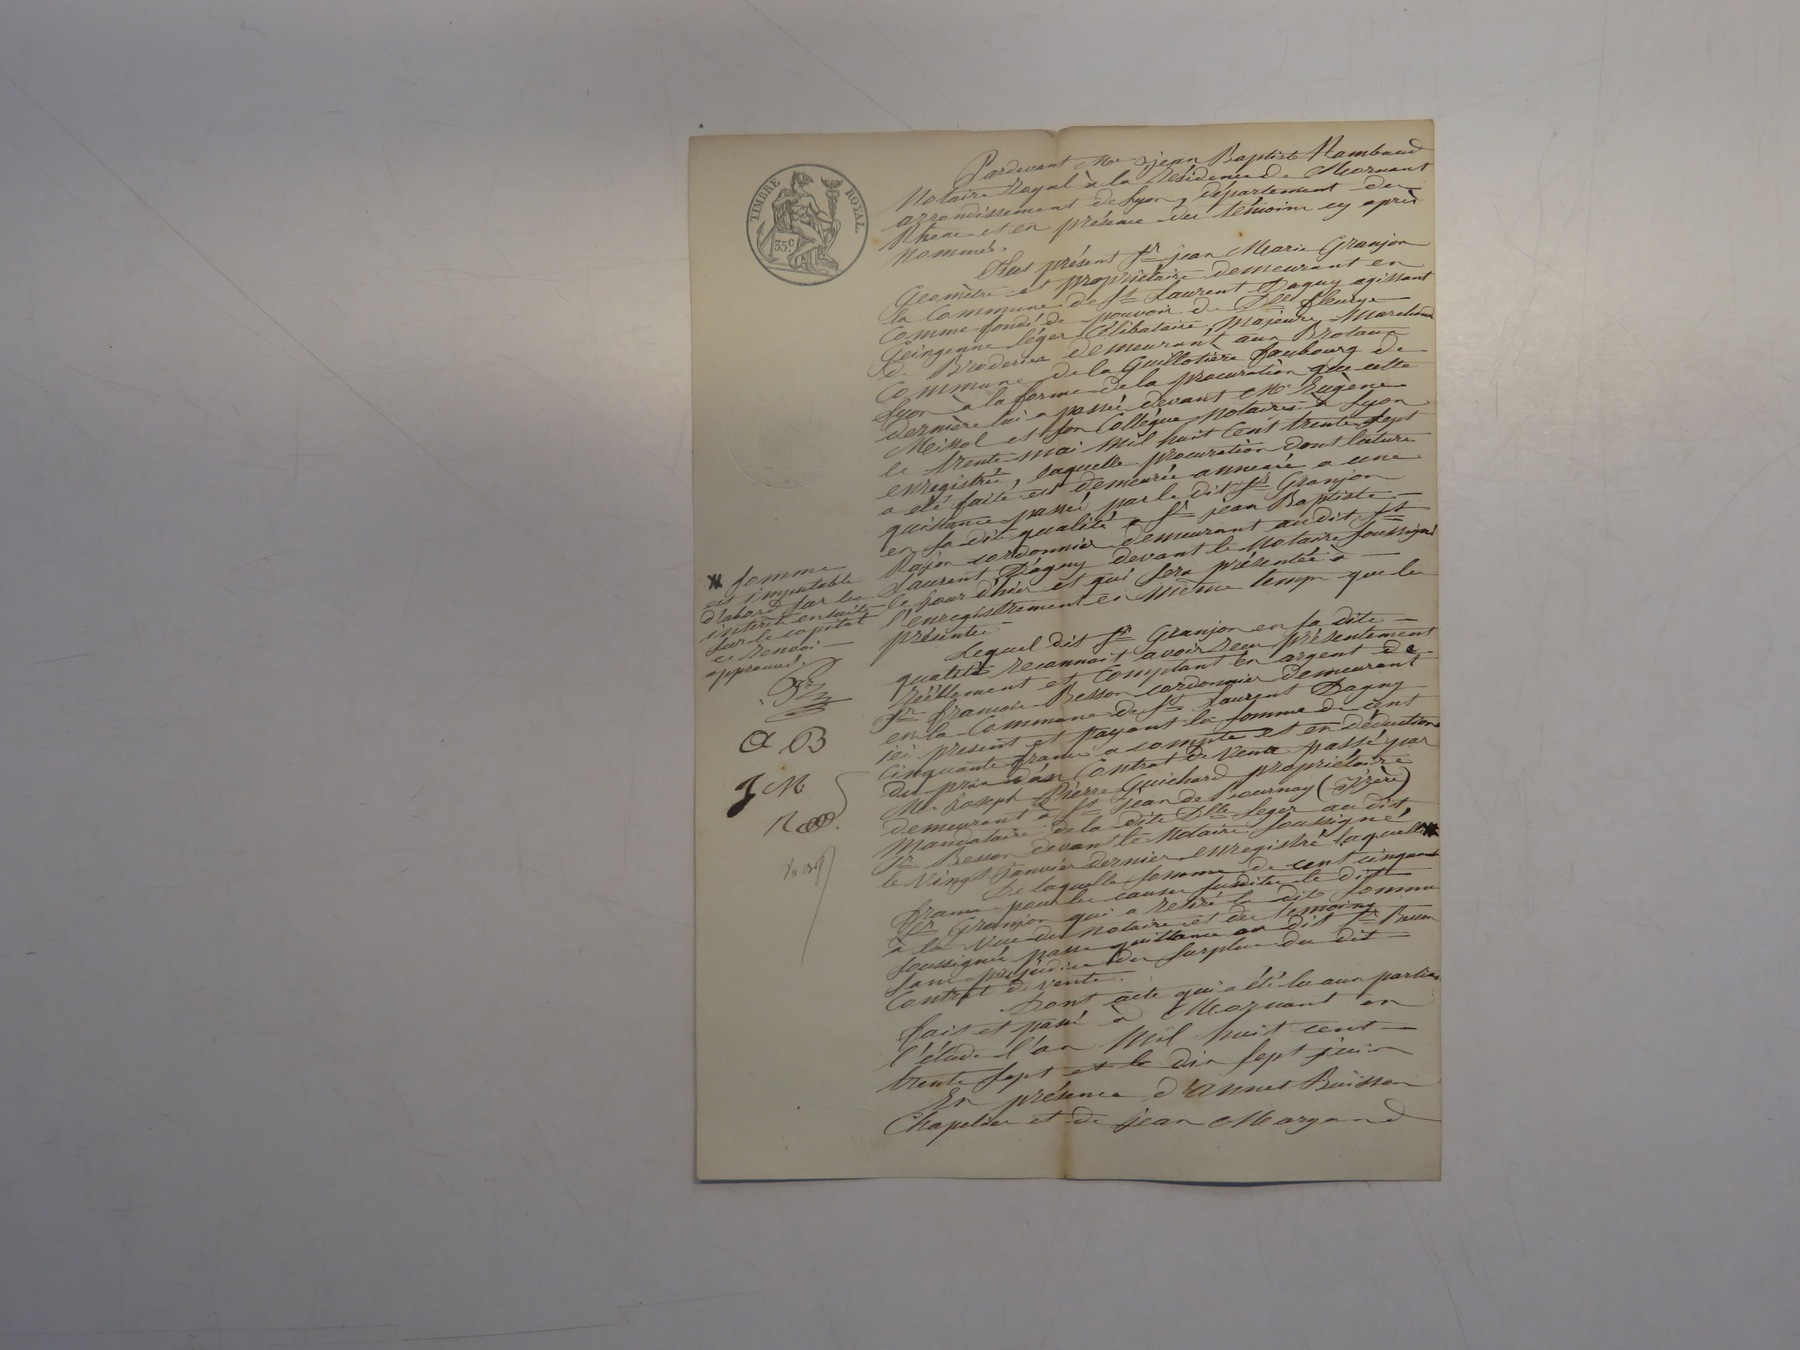 TIMBRE ROYAL.
35c
Pardevant Me jean Baptiste Rambaud
Notaire Royal à la Résidence de Mornant
arrondissement de Lyon, département du
Rhône et en présence des témoins cy après
nommés.
Fut présent Sr jean Marie Granjon
Géomètre et propriétaire demeurant en
la Commune de St Laurent Dagny agissant
Comme fondé de pouvoir de Dlle fleurye
Léger Célibataire, Majeure, Marchande
de Broderies demeurant aux Brotaux
Commune de la Guillotière faubourg de
Lyon à la forme de la procuration que cette
dernière lui a passée devant Me Eugène
et son Collègue Notaires à Lyon
le trente mai mil huit Cent trente sept
enregistrée, laquelle procuration dont lecture
a été faite est demeurée annexée a une
quittance passée par le dit Sr Granjon
en sa dite qualité a Sr jean Baptiste
cordonnier demeurant audit St
Laurent Dagny devant le Notaire soussigné
le jour d'hier et qui sera présentée à
l'enregistrement en même temps que la
présente
Lequel dit Sr Granjon en sa dite
qualité reconnait avoir reçu présentement
réellement et Comptant en argent de
Sr françois Besson cordonnier demeurant
en la Commune de St Laurent Dagny
ici présent et payant la somme de cent
Cinquante francs a compte et en déduction
du prix d'un Contrat de vente passé par
Mr Joseph Pierre Guichard propriétaire
demeurant à St jean de Bournay (Isère)
Mandataire de la dite Dlle Leger au dit
Sr Besson devant le Notaire soussigné
le vingt janvier dernier enregistré laquelle
De laquelle somme de cent cinquante
francs pour les causes susdites le dit
Sr Granjon qui a retiré la dite somme
à la vue du Notaire et des témoins
soussignés passe quittance au dit Sr Besson
sans préjudice du surplus du dit
Contrat de vente.
Dont acte qui a été lu aux parties
fait et passé à Mornant en
l'étude l'an mil huit cent
trente sept et le dix sept juin
En présence d'annet Buisson
Chapelier et de jean Margand
somme
est imputable
d'abord sur les
intérêts ensuite
sur le capital
ce renvoi
approuvé.
a B
J M